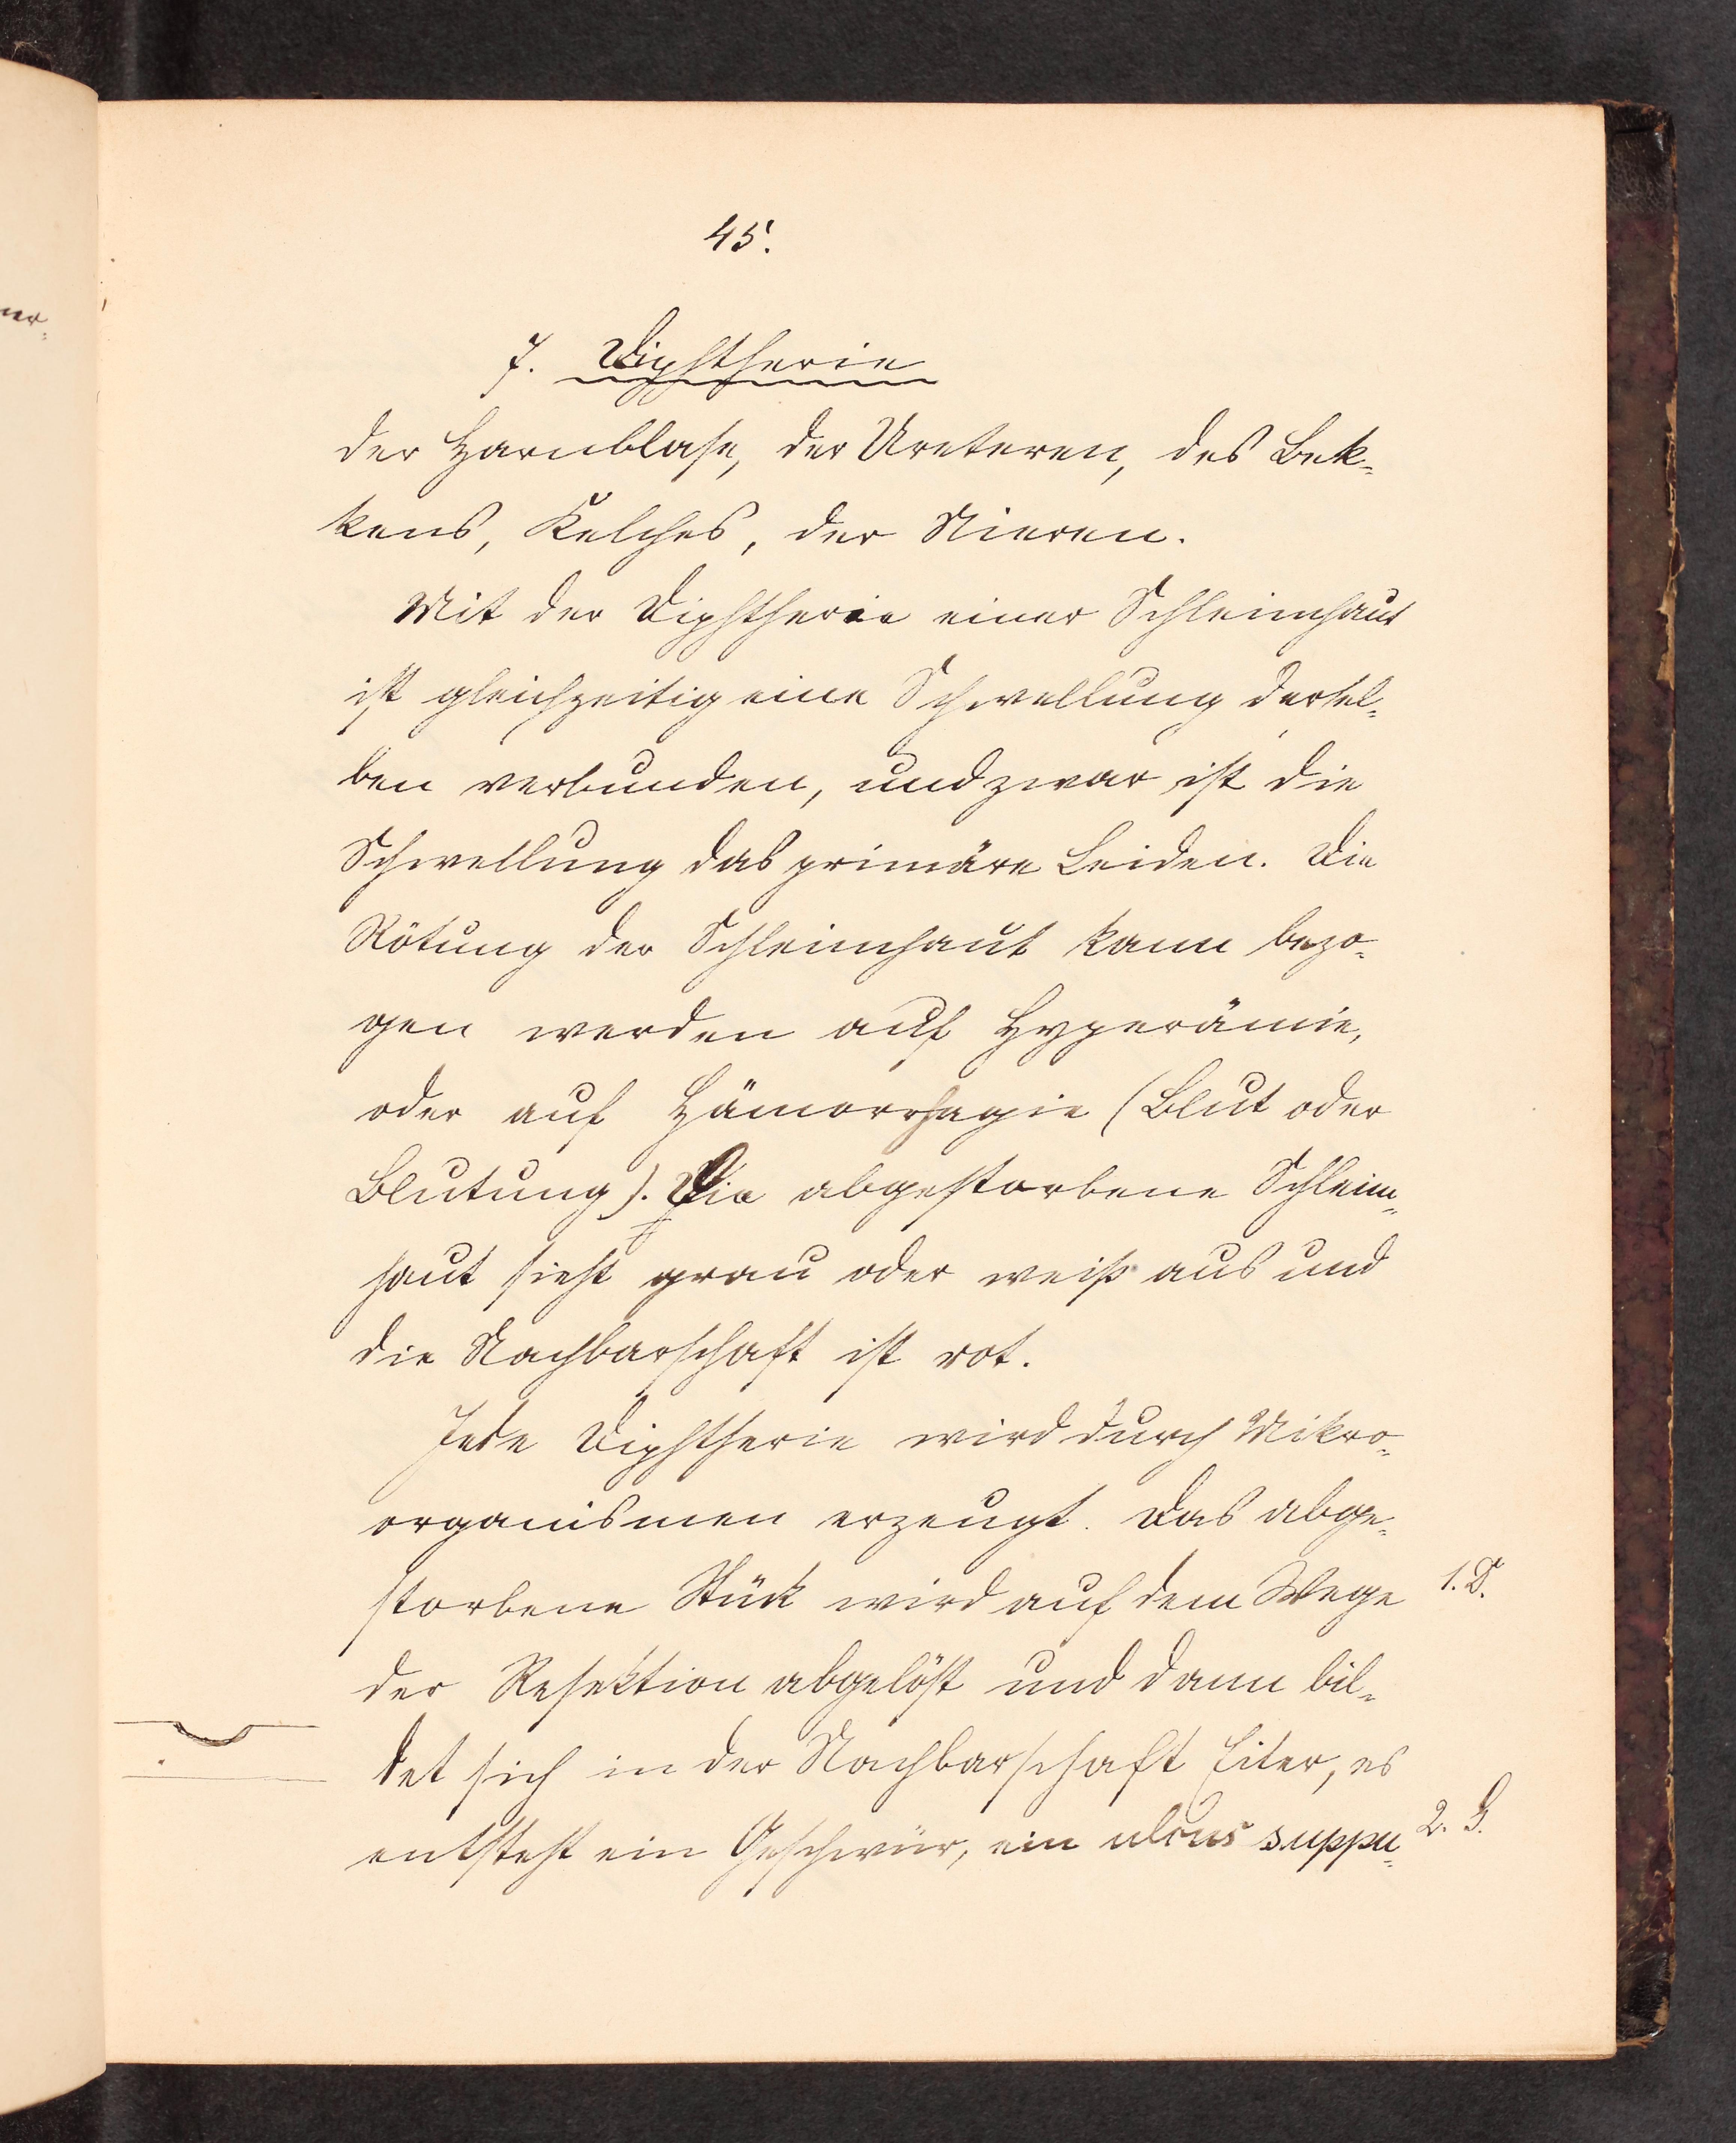 45.
7. Diphtherie
der Harnblase, der Ureteren, des Bek-
kens, Kelches, der Nieren.
Mit der Diphtherie einer Schleimhaut
ist gleichzeitig eine Schwellung dersel-
ben verbunden, und zwar ist die
Schwellung das primäre Leiden. Die
Rötung der Schleimhaut kann bezo-
gen werden auf Hyperämie,
oder auf Hämorrhagie (Blut oder
Blutung). Die abgestorbene Schleim-
haut sieht grau oder weiß aus und
die Nachbarschaft ist rot.
Jede Diphtherie wird durch Mikro-
organismen erzeugt. Das abge-
storbene Stück wird auf dem Wege 1. D.
der Resektion abgelöst und dann bil-
det sich in der Nachbarschaft Eiter, es
entsteht ein Geschwür, ein ulcus suppu- 2. G.